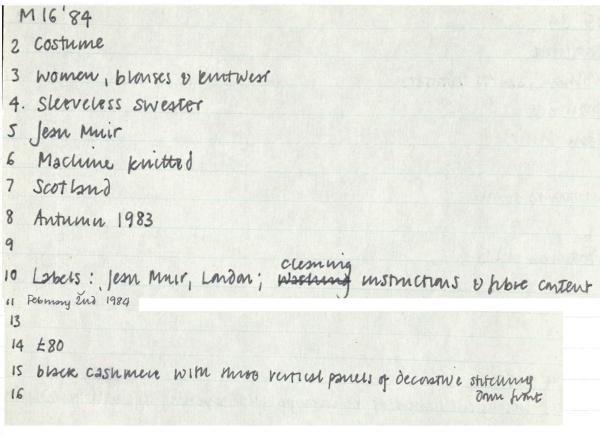 M16 '84
2 Costume
3 Women, blouses & knitwear
4. Sleeveless sweater
5 Jean Muir
6 Machine knitted
7 Scotland
8 Autumn 1983
9
10 Labels : Jean Muir, London; washing cleaning instructions & fibre content
11 February 2nd 1984
13
14 £80
15 black cashmere with three vertical panels of decorative stitching
16 down front